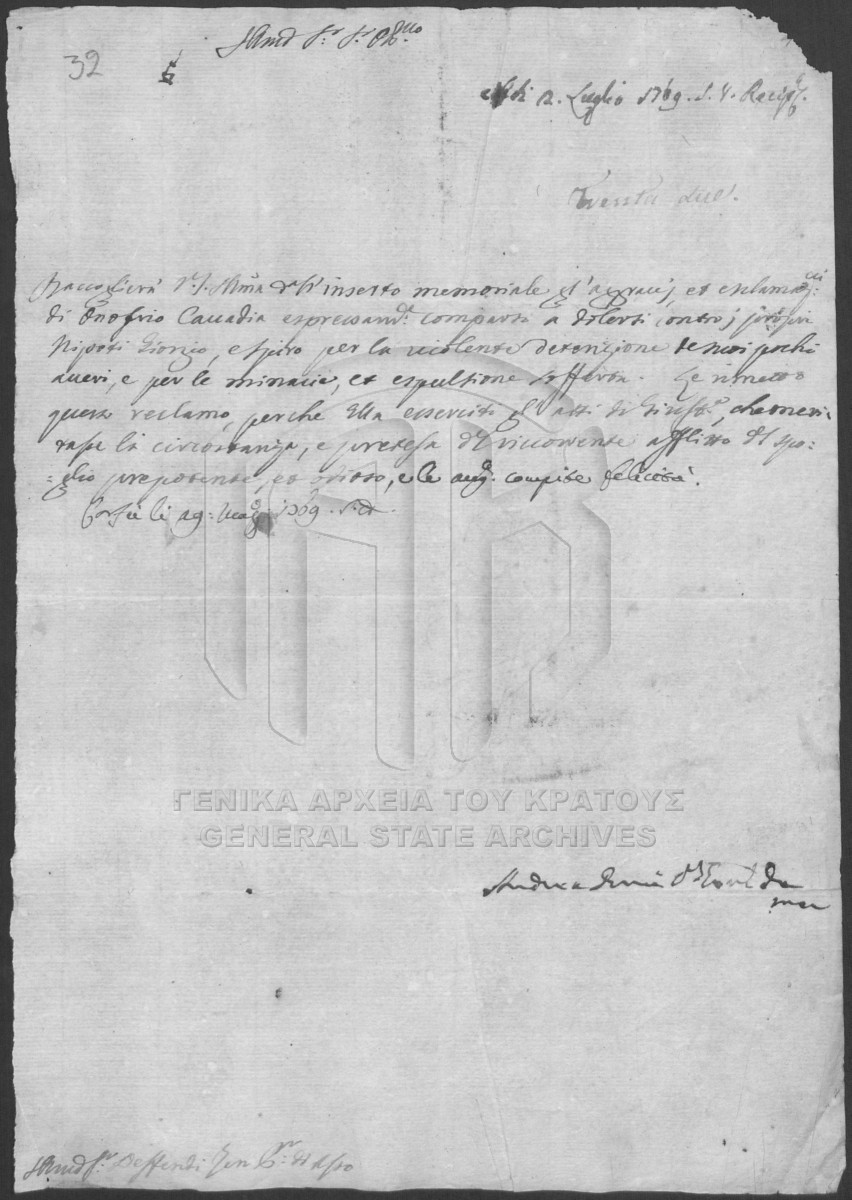 32
Illmo Sr. Sr. Osso.
Adi 2. Luglio 1769. S. V. Recip.
Trenta due.
Raccoglierà V. S. Illma dall'inserto memoriale gl'aggravj, et esclamaz:ni
di Onofrio Cauadia espressam. comparso a dolersi contro j proprj
Nipoti Giorgio, e Spiro per la violente detenzione de suoi pochi
averi, e per le minacie, et espulsione sofferta. Le rimetto
questo reclamo, perche Ella eserciti gl'atti di Giust.a, che meri-
tasse la circostanza, e pretesa del ricorrente afflitto dal spo-
glio prepotente, et odioso, e le aug. compite felicità.
Corfù li 29: Mag. 1769. S. V.
Andrea Donà
ΓΕΝΙΚΑ ΑΡΧΕΙΑ ΤΟΥ ΚΡΑΤΟΥΣ
GENERAL STATE ARCHIVES
Illmo Sr.